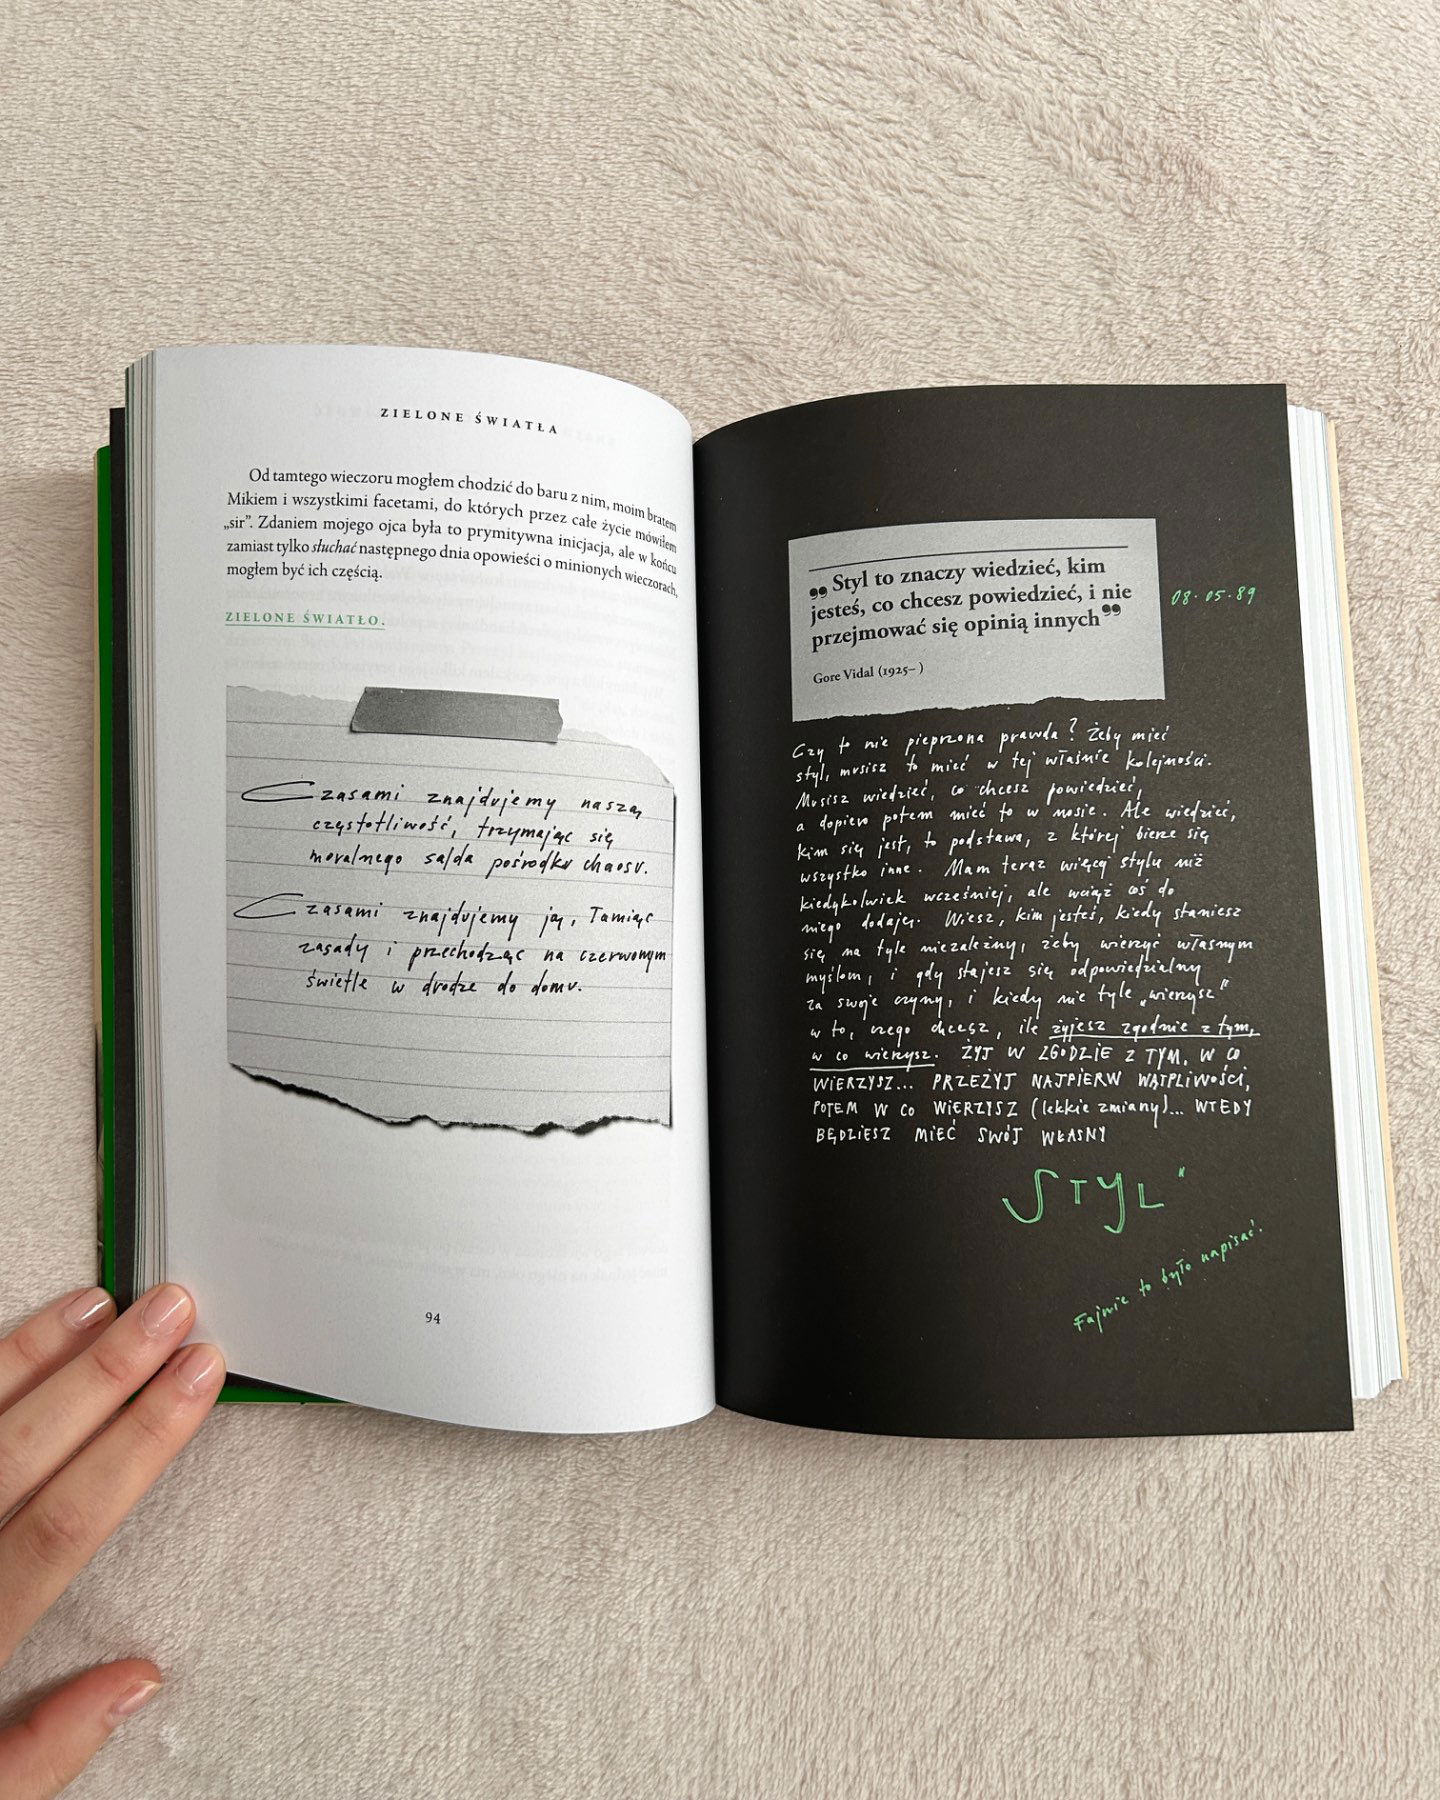 ZIELONE ŚWIATŁA
Od tamtego wieczoru mogłem chodzić do baru z nim, moim bratem
Mikiem i wszystkimi facetami, do których przez całe życie mówiłem
„sir”. Zdaniem mojego ojca była to prymitywna inicjacja, ale w końcu
zamiast tylko słuchać następnego dnia opowieści o minionych wieczorach,
mogłem być ich częścią.
ZIELONE ŚWIATŁO.
Czasami znajdujemy naszą
częstotliwość, trzymając się
moralnego salda pośrodku chaosu.
Czasami znajdujemy ją, łamiąc
zasady i przechodząc na czerwonym
świetle w drodze do domu.
94
„Styl to znaczy wiedzieć, kim
jesteś, co chcesz powiedzieć, i nie
przejmować się opinią innych”
Gore Vidal (1925– )
08.05.89
Czy to nie pieprzona prawda? Żeby mieć
styl, musisz to mieć w tej właśnie kolejności.
Musisz wiedzieć, co chcesz powiedzieć,
a dopiero potem mieć to w nosie. Ale wiedzieć,
kim się jest, to podstawa, z której bierze się
wszystko inne. Mam teraz więcej stylu niż
kiedykolwiek wcześniej, ale wciąż coś do
niego dodaję. Wiesz, kim jesteś, kiedy staniesz
się na tyle niezależny, żeby wierzyć własnym
myślom, i gdy stajesz się odpowiedzialny
za swoje czyny, i kiedy nie tyle „wierzysz”
w to, czego chcesz, ile żyjesz zgodnie z tym,
w co wierzysz. ŻYJ W ZGODZIE Z TYM, W CO
WIERZYSZ... PRZEŻYJ NAJPIERW WĄTPLIWOŚCI,
POTEM W CO WIERZYSZ (lekkie zmiany)... WTEDY
BĘDZIESZ MIEĆ SWÓJ WŁASNY
STYL"
Fajnie to było napisać.